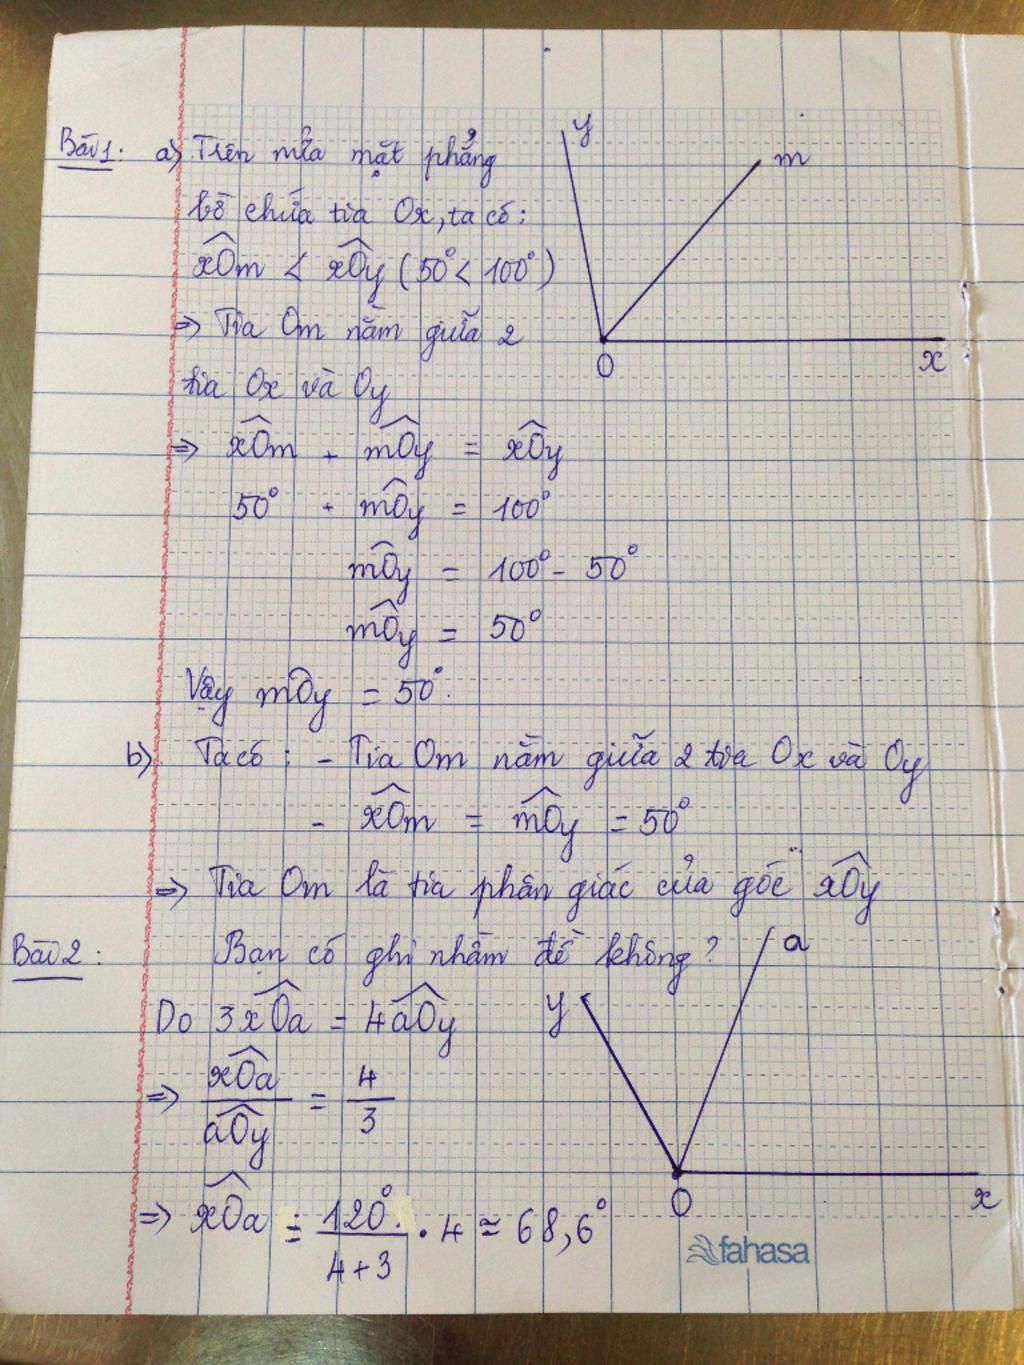 Bài 1: a) Trên nửa mặt phẳng
bờ chứa tia Ox, ta có:
xÔm < xÔy (50° < 100°)
=> Tia Om nằm giữa 2
tia Ox và Oy
=> xÔm + mÔy = xÔy
50° + mÔy = 100°
mÔy = 100° - 50°
mÔy = 50°
Vậy mÔy = 50°.
y
m
O
x
b) Ta có: - Tia Om nằm giữa 2 tia Ox và Oy
- xÔm = mÔy = 50°
=> Tia Om là tia phân giác của góc xÔy
Bài 2: Bạn có ghi nhầm đề không?
Do 3xÔa = 4aÔy
=> xÔa / aÔy = 4 / 3
=> xÔa = 120° / 4+3 . 4 ≈ 68,6°
a
y
O
x
fahasa